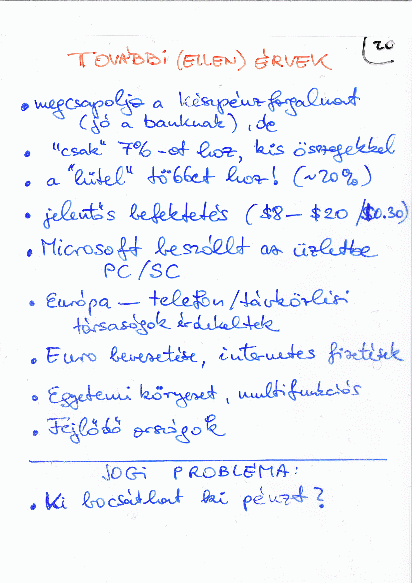 20
TOVÁBBI (ELLEN) ÉRVEK
• megcsapolja a készpénzforgalmat
(jó a banknak), de
• "csak" 7%-ot hoz, kis összegekkel
• a "hitel" többet hoz! (~20%)
• jelentős befektetés ($8 – $20 /$0.30)
• Microsoft beszállt az üzletbe
PC/SC
• Európa – telefon/távközlési
társaságok érdekeltek
• Euro bevezetése, internetes fizetések
• Egyetemi környezet, multifunkciós
• Fejlődő országok
JOGI PROBLÉMA:
• Ki bocsáthat ki pénzt?